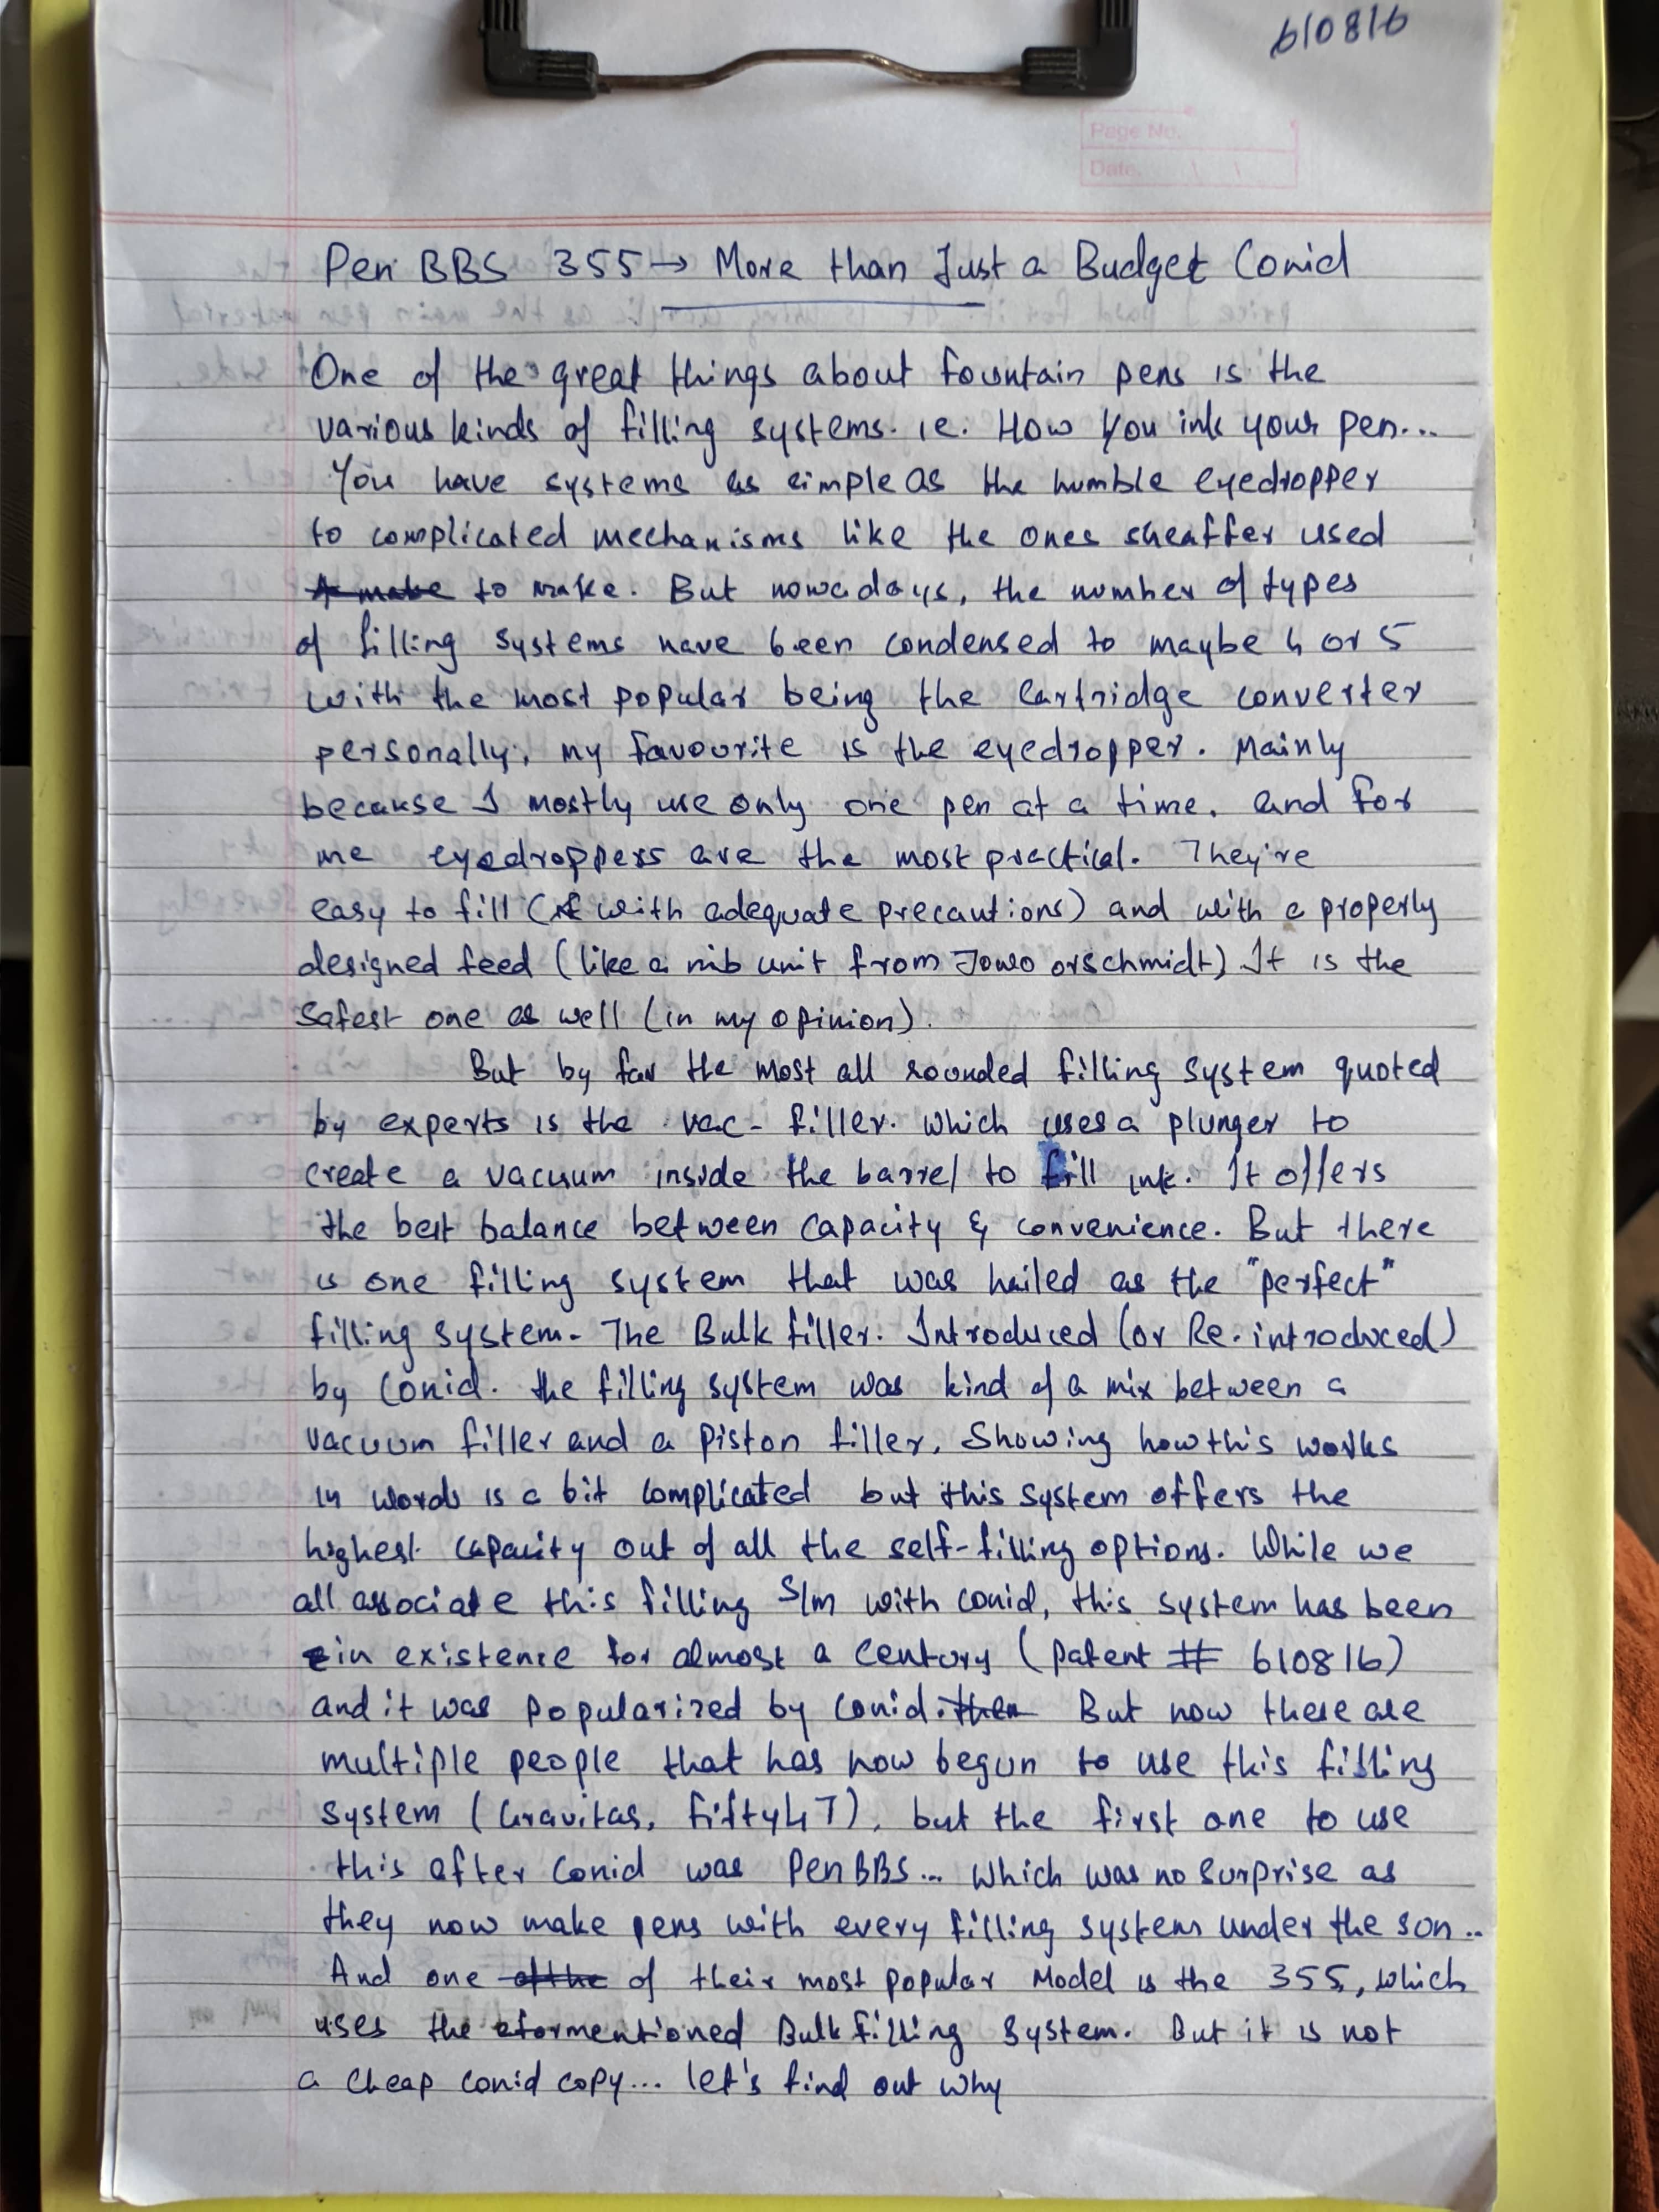 610816
Page No.
Date.
Pen BBS 355 → More than Just a Budget Conid
One of the great things about fountain pens is the
various kinds of filling systems. ie. How You ink your pen...
You have systems as simple as the humble eyedropper
to complicated mechanisms like the ones sheaffer used
to make. But nowadays, the number of types
of filling systems have been condensed to maybe 4 or 5
with the most popular being the Cartridge converter
personally, my favourite is the eyedropper. Mainly
because I mostly use only one pen at a time. and for
me eyedroppers are the most practical. They're
easy to fill (with adequate precautions) and with a properly
designed feed (like a nib unit from Jowo or schmidt) It is the
Safest one as well (in my opinion).
But by far the most all rounded filling system quoted
by experts is the vac-filler. which uses a plunger to
create a vacuum inside the barrel to fill ink. It offers
the best balance between capacity & convenience. But there
is one filling system that was hailed as the "perfect"
filling system- The Bulk filler. Introduced (or Re-introduced)
by Conid. the filling system was kind of a mix between a
vacuum filler and a Piston filler. Showing how this works
in words is a bit complicated but this system offers the
highest capacity out of all the self-filling options. While we
all associate this filling S/m with conid, this system has been
in existence for almost a century (patent # 610816)
and it was popularized by conid. But now there are
multiple people that has now begun to use this filling
system (Gravitas, fifty47), but the first one to use
this after Conid was PenBBS... which was no surprise as
they now make pens with every filling system under the son..
And one of their most popular Model is the 355, which
uses the aformentioned Bulk filling system. But it is not
a cheap conid copy... let's find out why